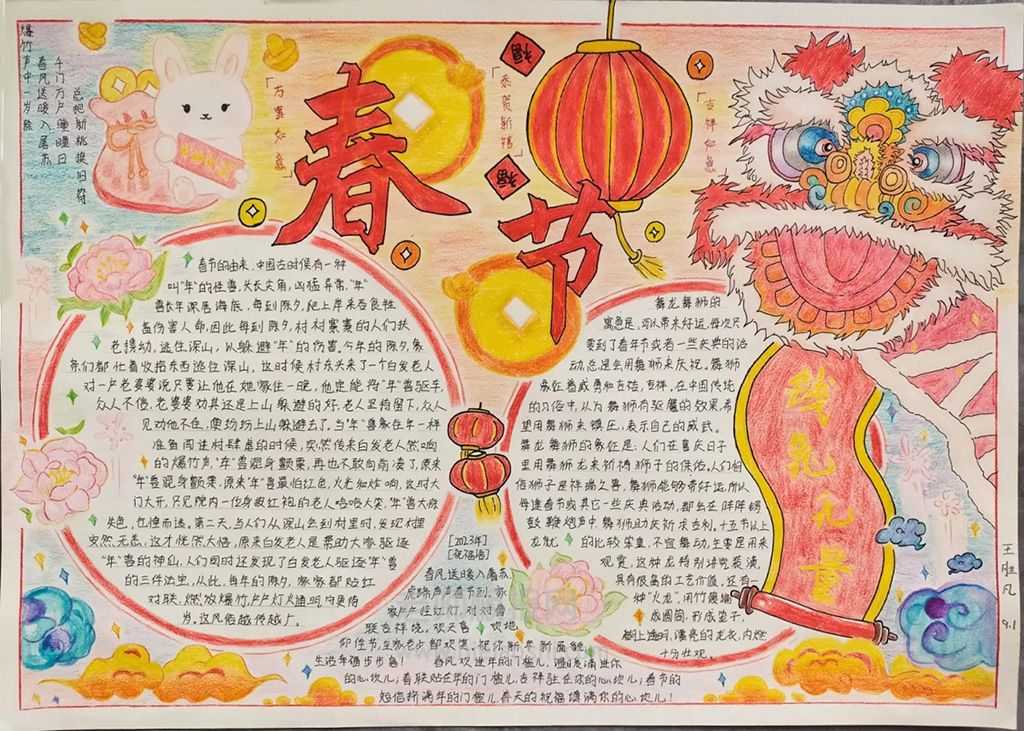 爆竹声中一岁除
春风送暖入屠苏
千门万户曈曈日
总把新桃换旧符
「万事如意」
春
节
「恭贺新禧」
福
福
「吉祥如意」
春节的由来，中国古时侯有一种
叫"年"的怪兽，头长尖角，凶猛异常，"年"
兽长年深居海底，每到除夕，爬上岸来吞食牲
畜伤害人命，因此每到除夕，村村寨寨的人们扶
老携幼，逃往深山，以躲避"年"的伤害。今年的除夕，乡
亲们都忙着收拾东西逃往深山，这时候村东头来了一个白发老人
对一户老婆婆说只要让他在她家住一晚，他定能将"年"兽驱手，
众人不信，老婆婆劝其还是上山躲避的好，老人坚持留下，众人
见劝他不住，便纷纷上山躲避去了。当"年"兽象往年一样
准备闯进村肆虐的时候，突然传来白发老人燃响
的爆竹声，"年"兽混身颤栗，再也不敢向前凑了，原来
"年"兽混身颤栗，原来"年"兽最怕红色，火光和炸响，这时大
门大开，只见院内一位身披红袍的老人哈哈大笑，"年"兽大惊
失色，仓惶而逃。第二天，当人们从深山回到村里时，发现村里
安然无恙，这才恍然大悟，原来白发老人是帮助大家驱逐
"年"兽的神仙，人们同时还发现了白发老人驱逐"年"兽
的三件法宝，从此，每年的除夕，家家都贴红
对联，燃放爆竹，户户灯火通明，守更待
岁。这风俗越传越广。
[2023年]
[祝福语]
春风送暖入屠苏，
声声春节到，家
家户户挂红灯，对对借
联吉祥绕，欢天喜地
佳节，全家老少都欢笑。祝你新年新面貌，
生活年强步步高！春风欢进年的门槛儿，温暖涌进你
的心坎儿；春联贴在年的门槛儿，吉祥驻在你的心坎儿；春节的
短信挤满年的门槛儿，春天的祝福填满你的心坎儿！
舞龙舞狮的
寓意是，可以带来好运，每次只
要到了春年节或者一些庆典的活
动，总是会用舞狮来庆祝。舞狮
象征着威勇和吉祥，吉祥，在中国传统
的习俗中，认为舞狮有驱魔的效果，希
望用舞狮来镇压，表示自己的威武。
舞龙舞狮的象征是：人们在喜庆日子
里用舞狮龙来祈祷狮子的保佑。人们相
信狮子是祥瑞之兽，舞狮能够带好运，所以
每逢春节或其它一些庆典活动，都会在阵阵锣
鼓，鞭炮声中，舞狮助庆祈求吉利，十五节以上
龙就的比较笨重，不宜舞动，主要是用来
观赏，这种龙特别讲究装潢，
具有很高的工艺价值，还有一
种"火龙"，用竹篾编
成圆筒，形成笼子，
糊上透明，漂亮的龙衣，内燃
十分壮观。
钱兔元量
王胜凡
9.1